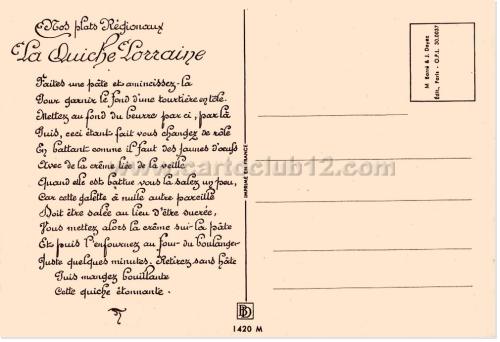 Nos plats Régionaux
La Quiche Lorraine
Faites une pâte et amincissez-la
Pour garnir le fond d'une tourtière en tôle.
Mettez au fond du beurre par ci, par là
Puis, ceci étant fait vous changez de rôle
En battant comme il faut des jaunes d'œufs
Avec de la crème liée de la veille
Quand elle est battue vous la salez un peu,
Car cette galette à nulle autre pareille
Doit être salée au lieu d'être sucrée,
Vous mettez alors la crème sur la pâte
Et puis l'enfournez au four du boulanger
Juste quelques minutes. Retirez sans hâte
Puis mangez bouillante
Cette quiche étonnante.
www.cartoclub12.com
IMPRIMÉ EN FRANCE
BD
1420 M
M. Barré & J. Dayez
Édit., Paris - O.P.L. 30,0037